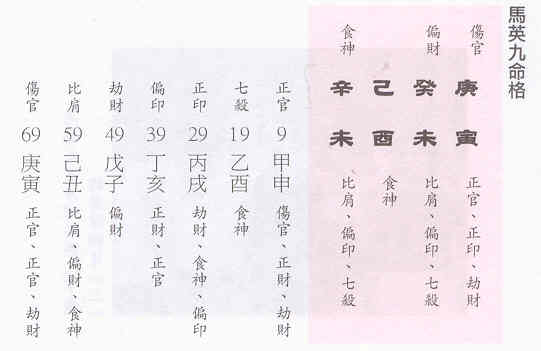 馬英九命格
傷官 庚寅 正官、正印、劫財
偏財 癸未 比肩、偏印、七殺
己酉 食神
食神 辛未 比肩、偏印、七殺
正官 9 甲申 傷官、正財、劫財
七殺 19 乙酉 食神
正印 29 丙戌 劫財、食神、偏印
偏印 39 丁亥 正財、正官
劫財 49 戊子 偏財
比肩 59 己丑 比肩、偏財、食神
傷官 69 庚寅 正官、正官、劫財